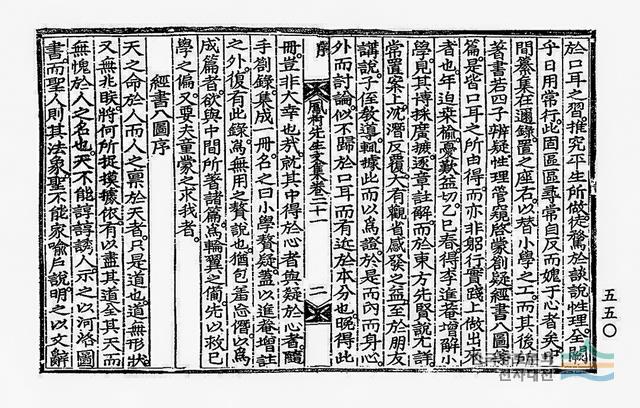 於口耳之習推究平生所做徒騖於談說性理全闕
乎日用常行此固區區尋常自反而媿于心者矣中
間纂集在邇錄置之座右以替小學之工而其後所
著書若四子辨疑性理管窺啓蒙劄疑經書八圖等
篇是皆口耳之所由得而亦非躬行實踐上做出來
者也年迫桑楡憂歎益切乙巳春得李進菴增解小
學見其博採廣摭逐章註解而於東方先賢說尤詳
常置案上沈潛反覆大有觀省感發之益至於朋友
講說子侄敎導輒據此而以爲證於是而內而身心
外而討論似不歸於口耳而有近於本分也晩得此
序
鳳村先生文集卷二十一
二
冊豈非大幸也哉就其中得於心者與疑於心者隨
手劄錄集成一冊名之曰小學贅疑蓋以進菴增註
之外復有此錄爲無用之贅說也猶包羞忘僭以爲
成篇者欲與中間所著諸篇爲輪翼之備先以救己
學之偏又要夫童蒙之求我者
經書八圖序
天之命於人而人之禀於天者只是道也道無形狀
又無兆眹將何所捉摸據依有以盡其道全其天而
無愧於人之名也天不能諄諄誘人示之以河洛圖
書而聖人則其法象聖不能家喩戶說明之以文辭
五五〇